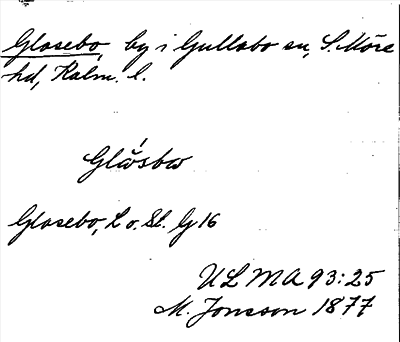 Glosebo, by i Gullabo sn, S. Möre
hd, Kalm. l.
Glosebo, L o. St. G 16
ULMA 93:25
M. Jonsson 1877